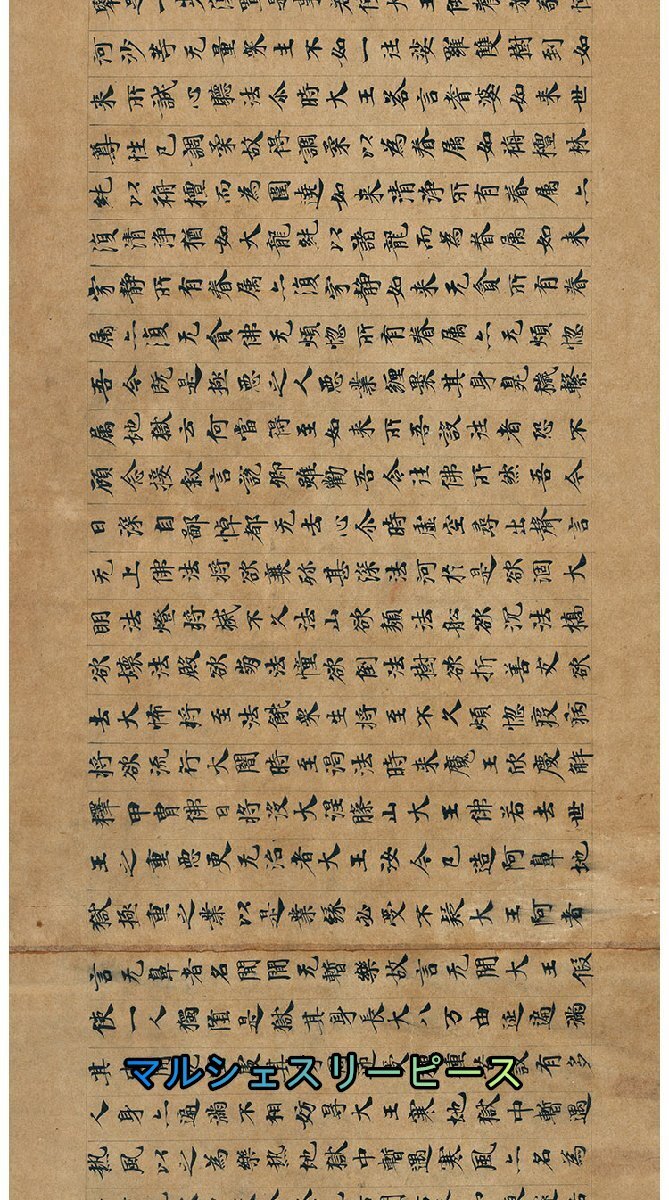 河沙等无量衆生不如一往娑羅雙樹到如
来所誠心聽法尒時大王荅言耆婆如来世
尊性已調柔故得調柔以為眷属如栴檀林
純以栴檀而為圍遶如来清淨所有眷属亦
復清淨猶如大龍純以諸龍而為眷属如来
寂静所有眷属亦復寂静如来无貪所有眷
属亦復无貪佛无煩惚所有眷属亦无煩惚
吾今既是極悪之人悪業纏裹其身臰穢繫
属地獄云何當得至如来所吾設往者恐不
顧念接叙言說卿雖勸吾令往佛所然吾今
日深自鄙悼都无去心尒時虚空尋出聲言
无上佛法将欲衰殄甚深法河於是欲涸大
明法燈将滅不久法山欲頽法船欲沉法橋
欲壊法殿欲崩法幢欲倒法樹欲折善友欲
去大怖将至法餓衆生将至不久煩惚疫病
将欲流行大闇時至渇法時来魔王欣慶解
釋甲胄佛日将没大涅槃山大王佛若去世
王之重悪更无治者大王汝今已造阿鼻地
獄極重之業以是業緣必受不疑大王阿者
言无鼻者名間間无暫樂故言无間大王假
使一人獨堕是獄其身長大八万由延遍滿
人身亦遍滿不相妨㝵大王寒地獄中暫遇
熱風以之為樂熱地獄中暫遇寒風亦名為
マルシェスリーピース